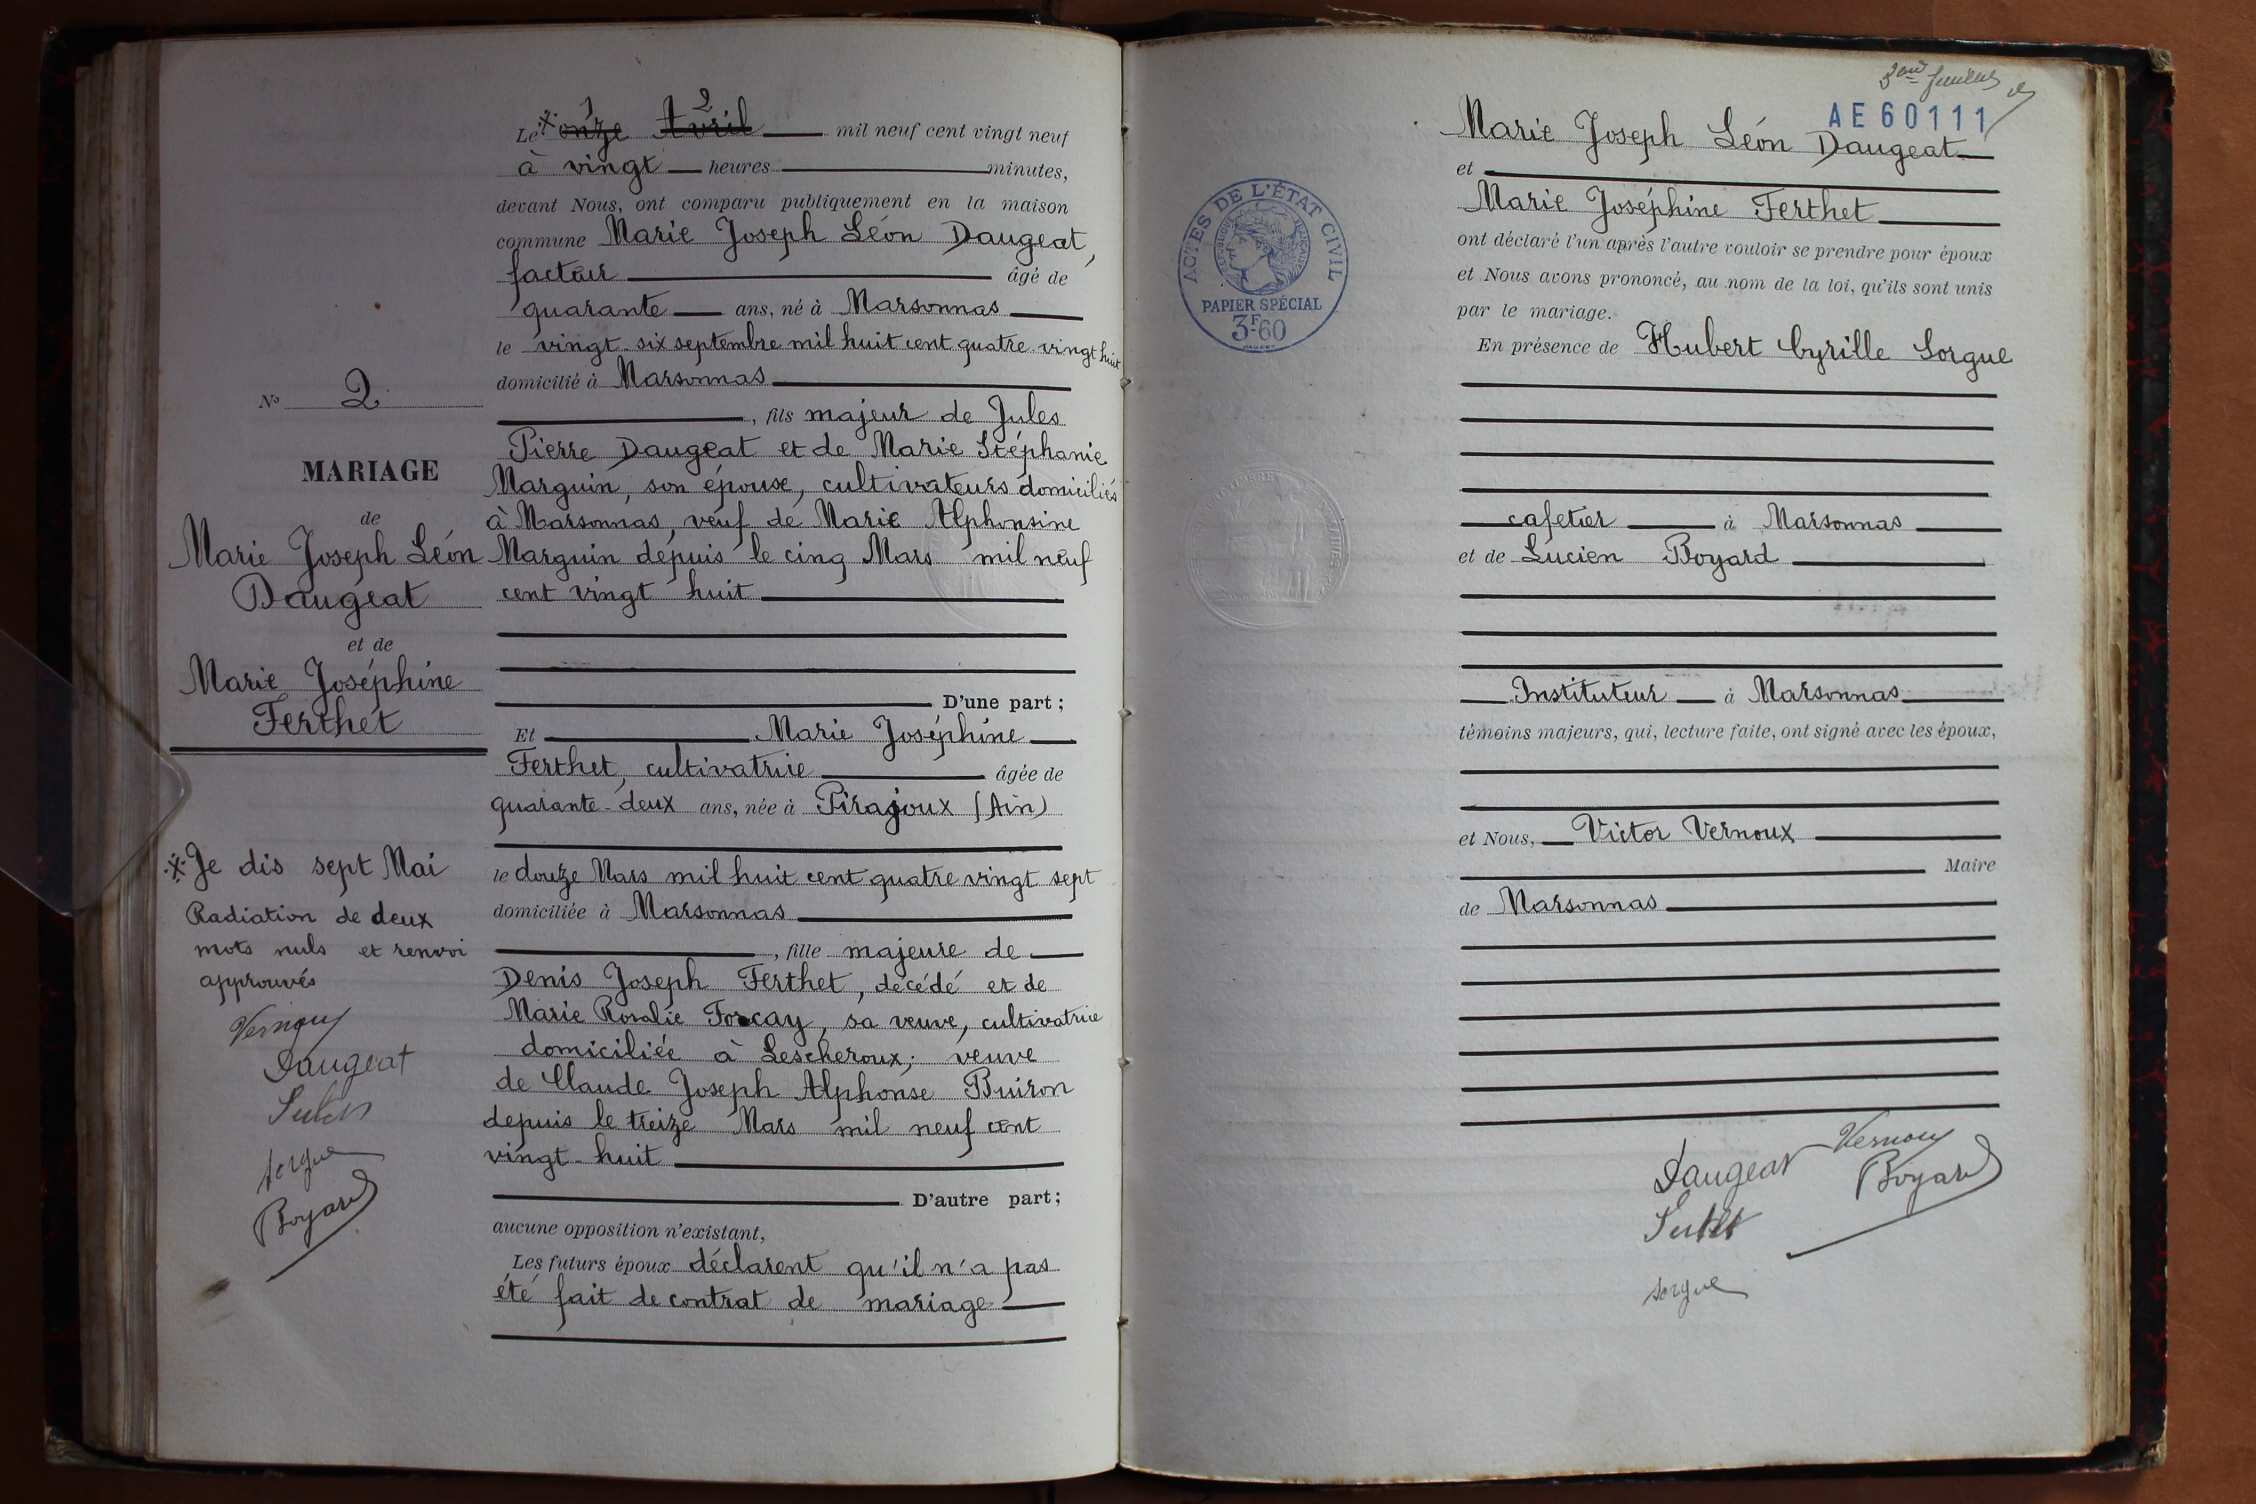 1 2
Le * onze Avril mil neuf cent vingt neuf
à vingt heures minutes,
devant Nous, ont comparu publiquement en la maison
commune Marie Joseph Léon Daugeat,
facteur âgé de
quarante ans, né à Marsonnas
le vingt-six septembre mil huit cent quatre-vingt huit
domicilié à Marsonnas
, fils majeur de Jules
Pierre Daugeat et de Marie Stéphanie
Marguin, son épouse, cultivateurs domiciliés
à Marsonnas, veuf de Marie Alphonsine
Marguin depuis le cinq Mars mil neuf
cent vingt huit
D'une part ;
Et Marie Joséphine
Ferthet, cultivatrice âgée de
quarante-deux ans, née à Pirajoux (Ain)
le douze Mars mil huit cent quatre vingt sept
domiciliée à Marsonnas
, fille majeure de
Denis Joseph Ferthet, décédé et de
Marie Rosalie Forcay, sa veuve, cultivatrice
domiciliée à Lescheroux; veuve
de Claude Joseph Alphonse Buiron
depuis le treize Mars mil neuf cent
vingt-huit
D'autre part ;
aucune opposition n'existant,
Les futurs époux déclarent qu'il n'a pas
été fait de contrat de mariage
No 2
MARIAGE
de
Marie Joseph Léon
Daugeat
et de
Marie Joséphine
Ferthet
* Je dis sept Mai
Radiation de deux
mots nuls et renvoi
approuvés
Vernoux
Daugeat
Sorgue
Boyard
AE60111
Marie Joseph Léon Daugeat
et
Marie Joséphine Ferthet
ont déclaré l'un après l'autre vouloir se prendre pour époux
et Nous avons prononcé, au nom de la loi, qu'ils sont unis
par le mariage.
En présence de Hubert Cyrille Sorgue
cafetier à Marsonnas
et de Lucien Boyard
Instituteur à Marsonnas
témoins majeurs, qui, lecture faite, ont signé avec les époux,
et Nous, Victor Vernoux
Maire
de Marsonnas
Daugeat Vernoux
Boyard
Sorgue
ACTES DE L'ÉTAT CIVIL
RÉPUBLIQUE FRANÇAISE
PAPIER SPÉCIAL
3F60